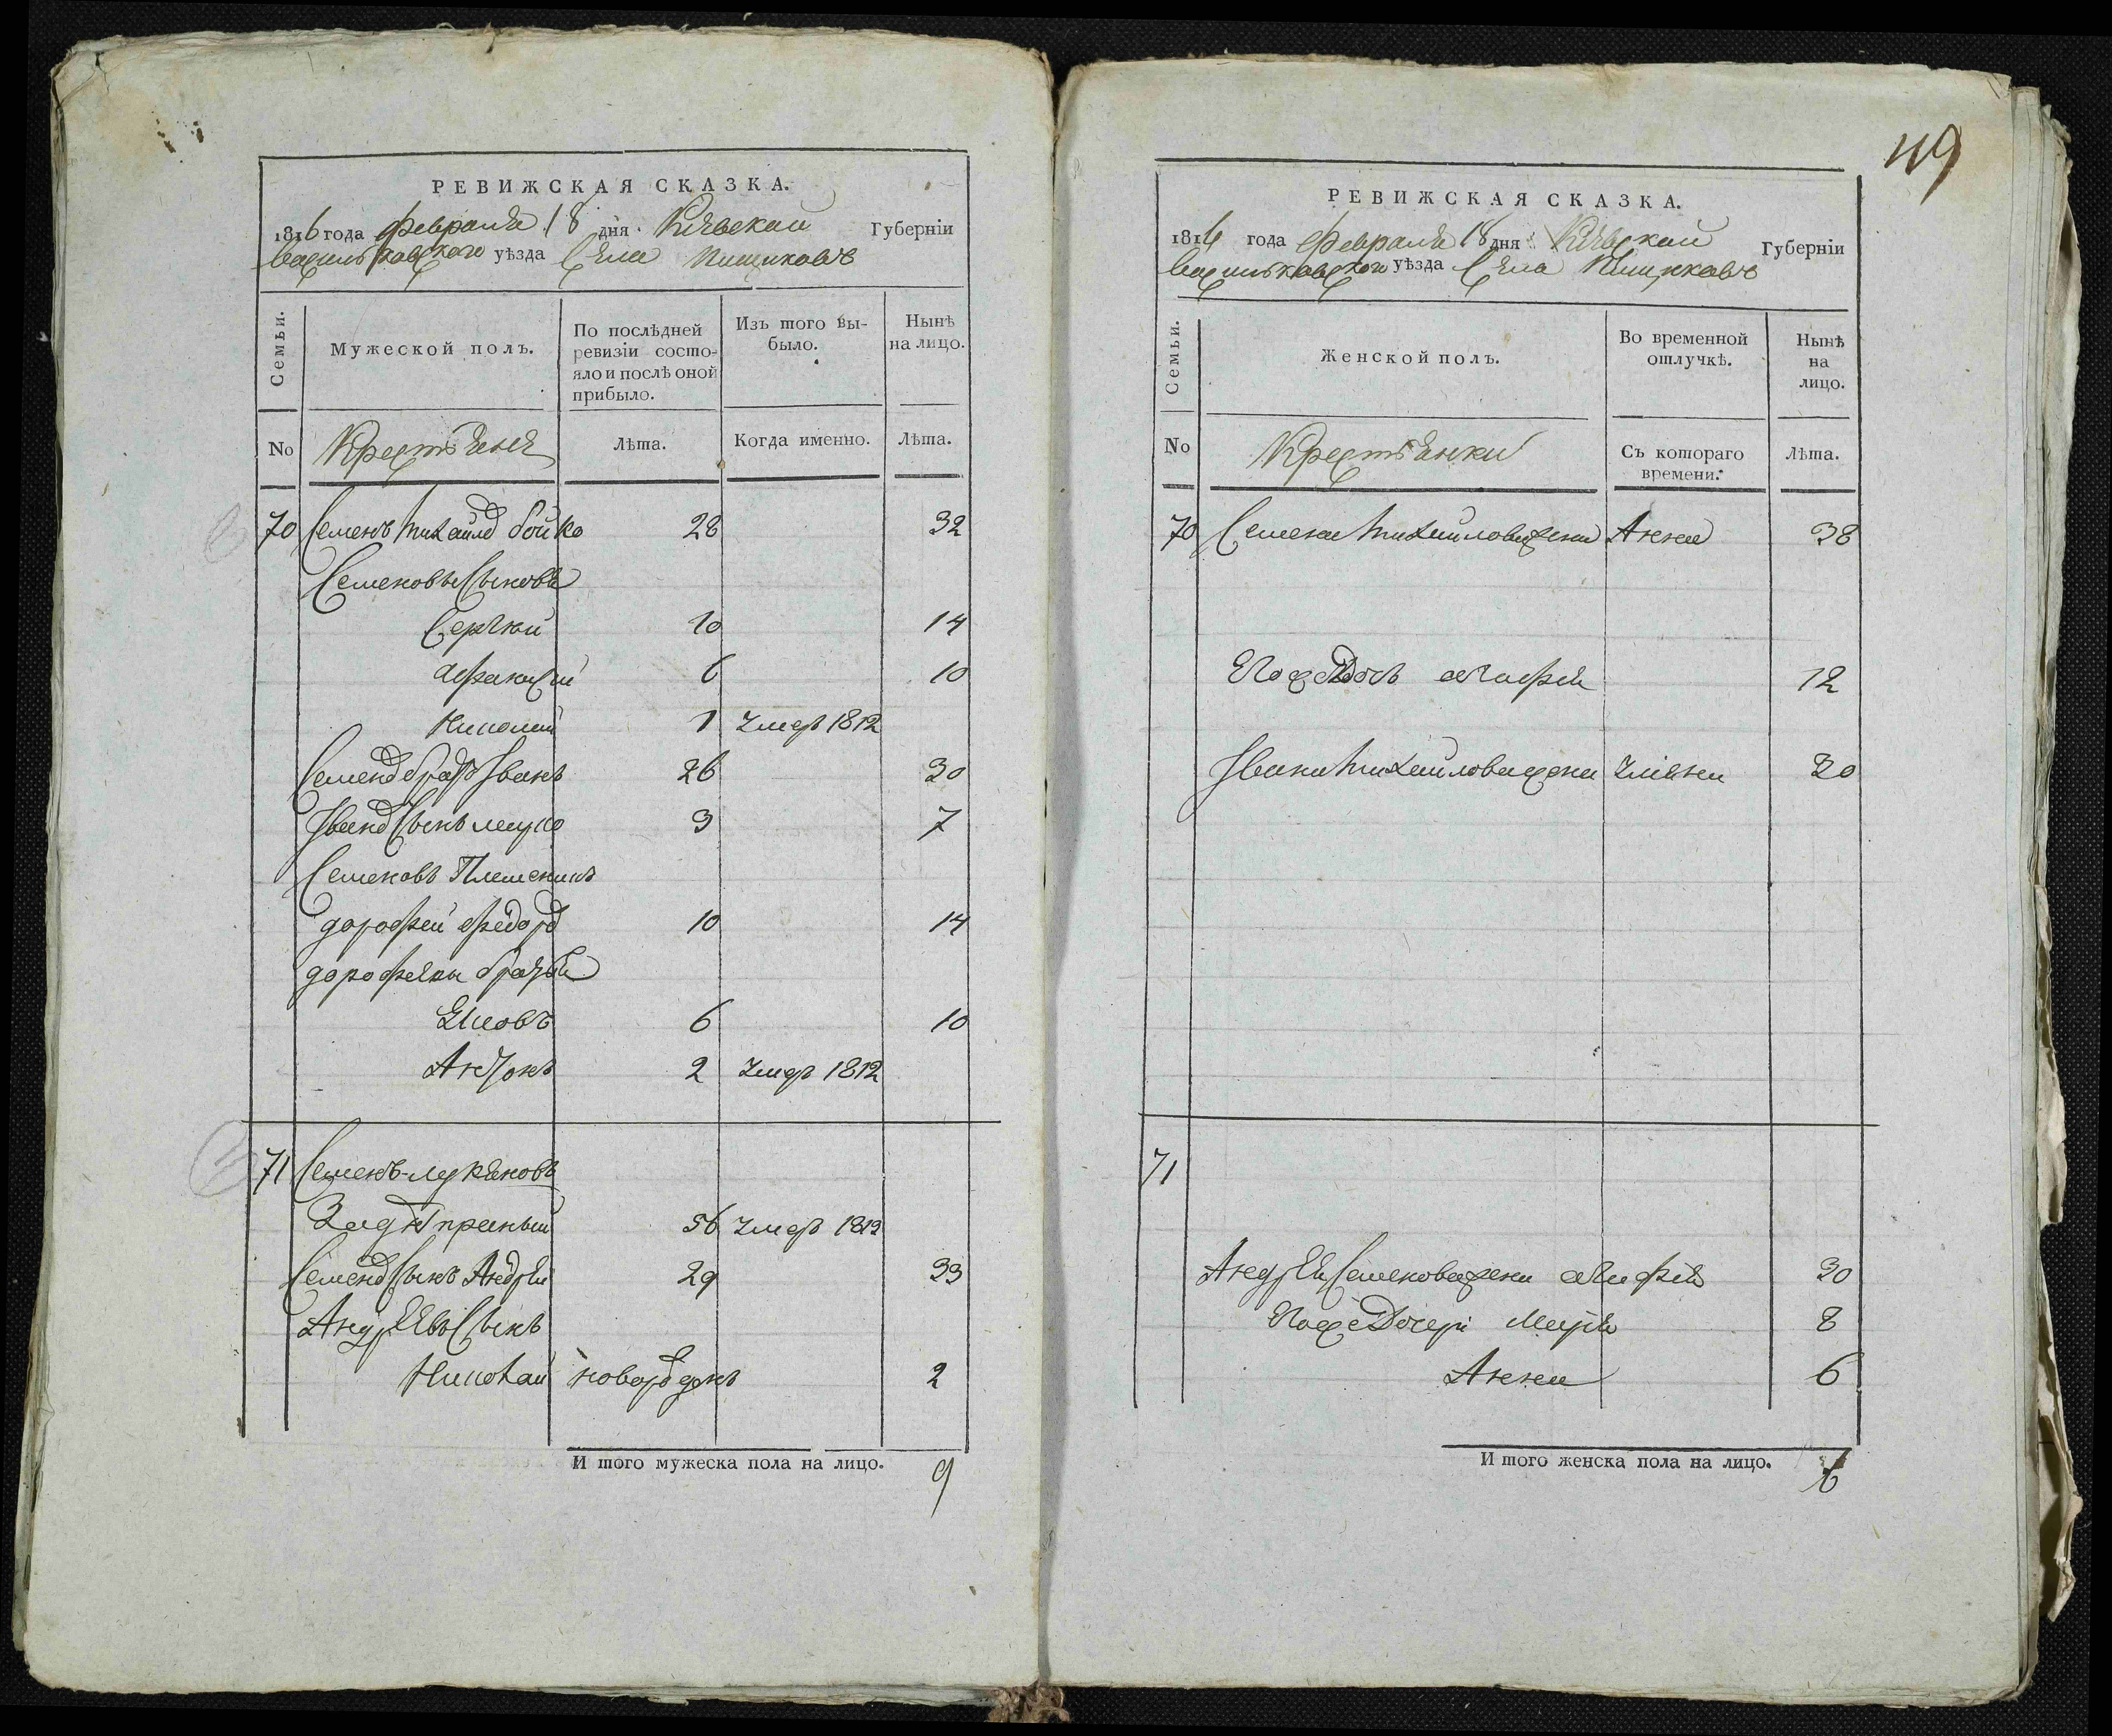 РЕВИЖСКАЯ СКАЗКА.
1816 года февраля 18 дня Киевской Губерніи
Васильковского уѣзда Села Пищиковъ
Семьи.
Мужеской полъ.
По послѣдней ревизіи состо-
яло и послѣ оной
прибыло.
Изъ того вы-
было.
Нынѣ
на лицо.
No
Крестьяне
Лѣта.
Когда именно.
Лѣта.
70 Семенъ Михайловъ бойко 28 32
Семеновы Сыновя
Сергий 10 14
Афанасий 6 10
Николай 1 умеръ 1812
Семена братъ Иванъ 26 30
Ивана Сынъ 3 7
Семеновъ Племеникъ
дорофей Федоровъ 10 14
дорофеяны братья
Яковъ 6 10
Антонъ 2 умеръ 1812
71 Семенъ Лукяновъ
56 умеръ 1812
Семена Сынъ Андрей 29 33
Андреевъ Сынъ
Николай новорожденъ 2
И того мужеска пола на лицо. 9
119
РЕВИЖСКАЯ СКАЗКА.
1816 года февраля 18 дня Киевской Губерніи
Васильковского уѣзда Села Пищиковъ
Семьи.
Женской полъ.
Во временной
отлучкѣ.
Нынѣ
на
лицо.
No
Крестьянки
Съ котораго
времени.
Лѣта.
70 Семена Михайлова жена Анна 38
Егоже дочь Агафия 12
Ивана Михайлова жена Уляна 30
71
Андрея Семенова жена Агафия 30
Егоже Дочери Маря 8
Анна 6
И того женска пола на лицо. 6